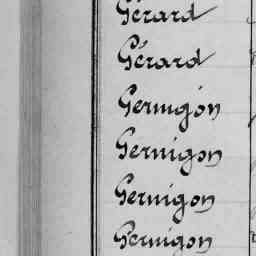 Gérard
Gérard
Gernigon
Gernigon
Gernigon
Gernigon